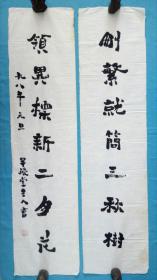 删繁就简三秋樹
領異標新二月花
一九八年元旦